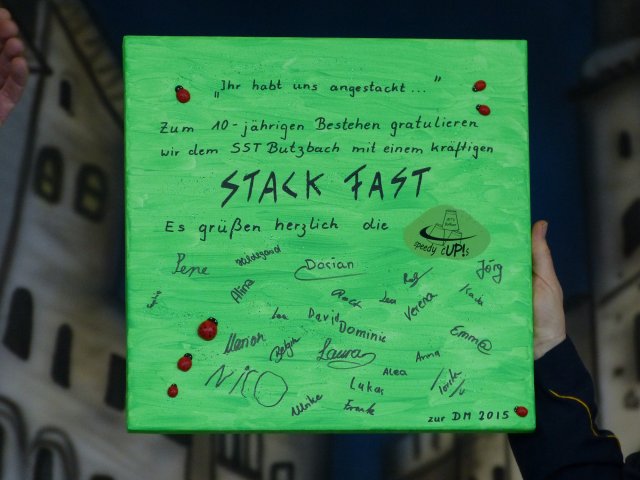 „Ihr habt uns angestackt..."
Zum 10-jährigen Bestehen gratulieren
wir dem SST Butzbach mit einem kräftigen
STACK FAST
Es grüßen herzlich die
speedy cUP!s
Hildegard
Pepe
Dorian
Rolf
Jörg
Alina
Lea
Verena
Lea
David
Dominic
Marion
Laura
Emm@
Anna
Alea
NICO
Lukas
Ulrike
Frank
zur DM 2015